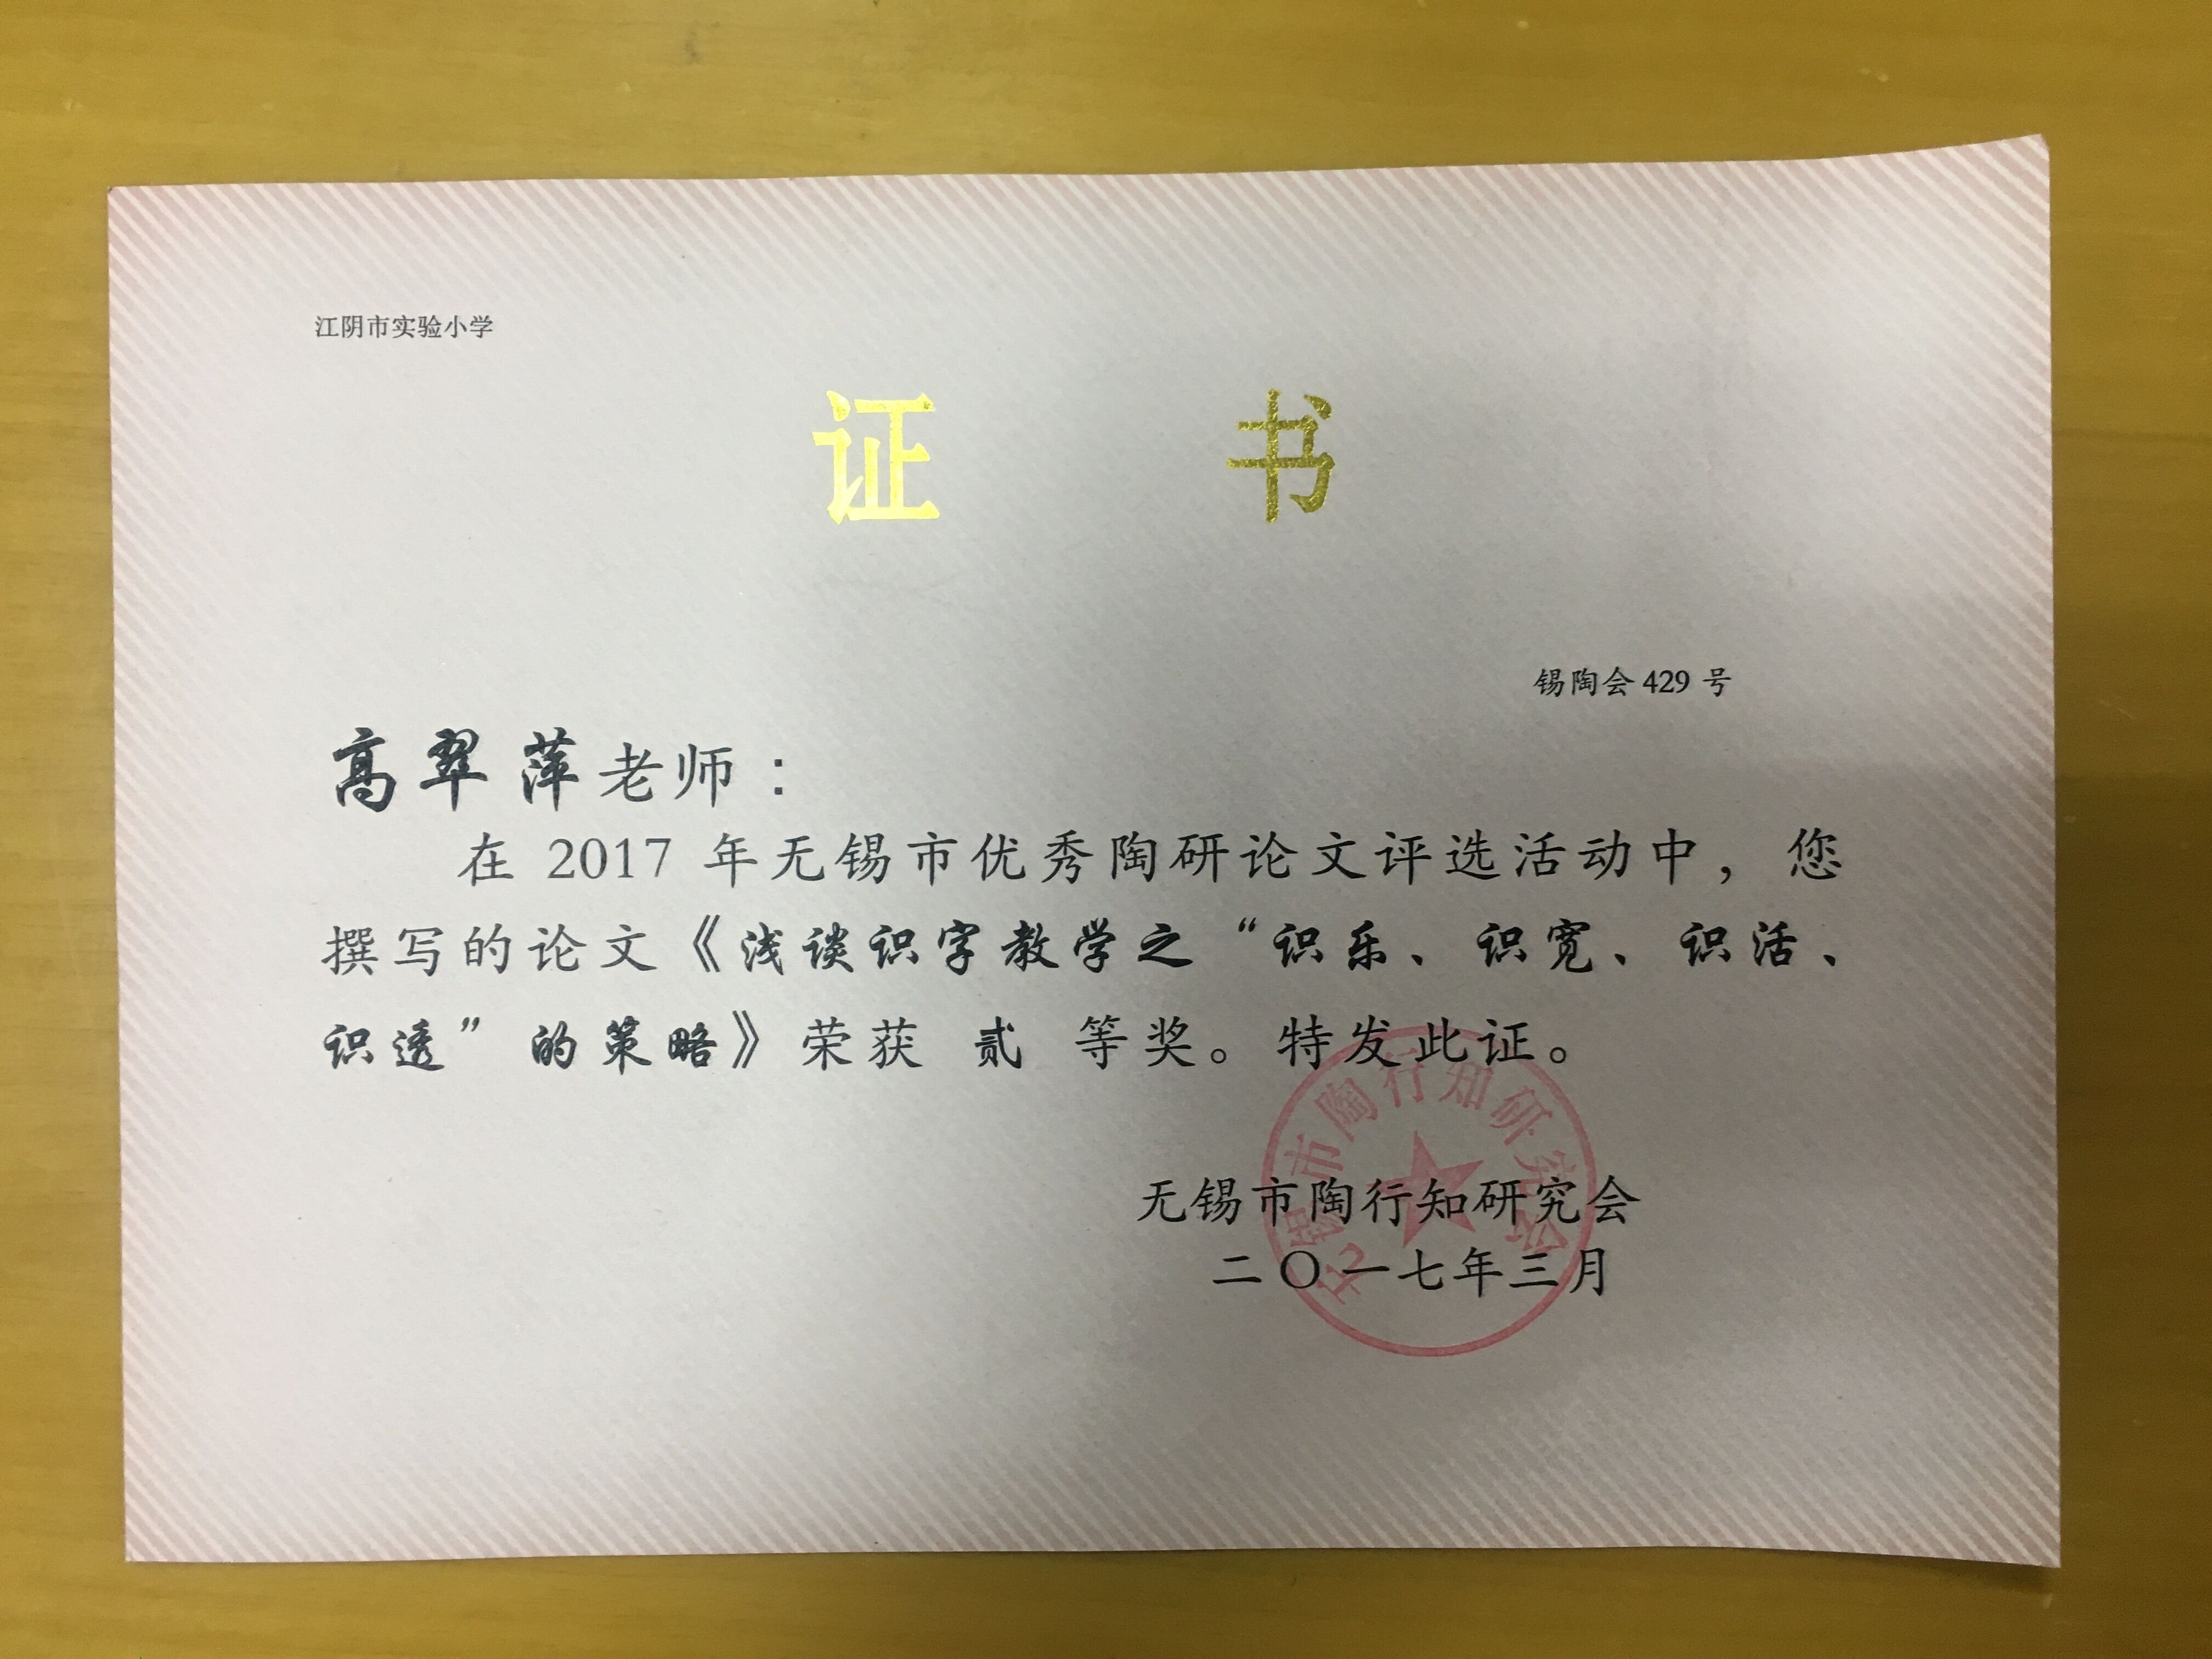 江阴市实验小学
证 书
锡陶会 429 号
高翠萍老师：
在 2017 年无锡市优秀陶研论文评选活动中，您
撰写的论文《浅谈识字教学之“识乐、识宽、识活、
识透”的策略》荣获 贰 等奖。特发此证。
无锡市陶行知研究会
无锡市陶行知研究会
二〇一七年三月